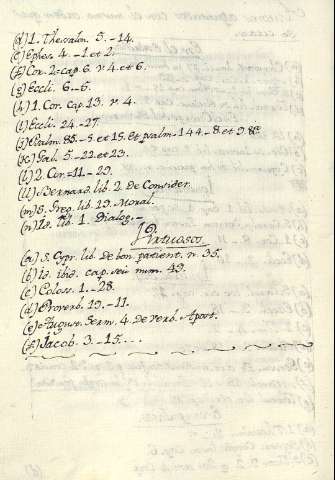 (d) 1. Thesalon. 5.-14.
(e) Ephes. 4.-1 et 2.
(f) Cor. 2. cap. 6. v. 4 et 6.
(g) Eccli. 6.-5.
(h) 1. Cor. cap. 13. v. 4.
(i) Eccli. 24-27.
(j) Psalm. 85.-5 et 15. et psalm-144.-8. et 9. &c.
(k) Gal. 5.-22 et 23.
(l) 2. Cor.=11.-29.
(ll) Bernard. lib. 2. de Consider.
(m) S. Greg. lib. 19. Moral.
(n) Id. lib. 1. Dialog.-
Virtuoso
(a) S. Cypr. lib. de bon. patient. n. 35.
(b) Id. ibid. cap. seu num. 49.
(c) Coloss. 1.-28.
(d) Proverb. 19.-11.
(e) August. Serm. 4. de Verb. Apost.
(f) Jacob. 3.-15...